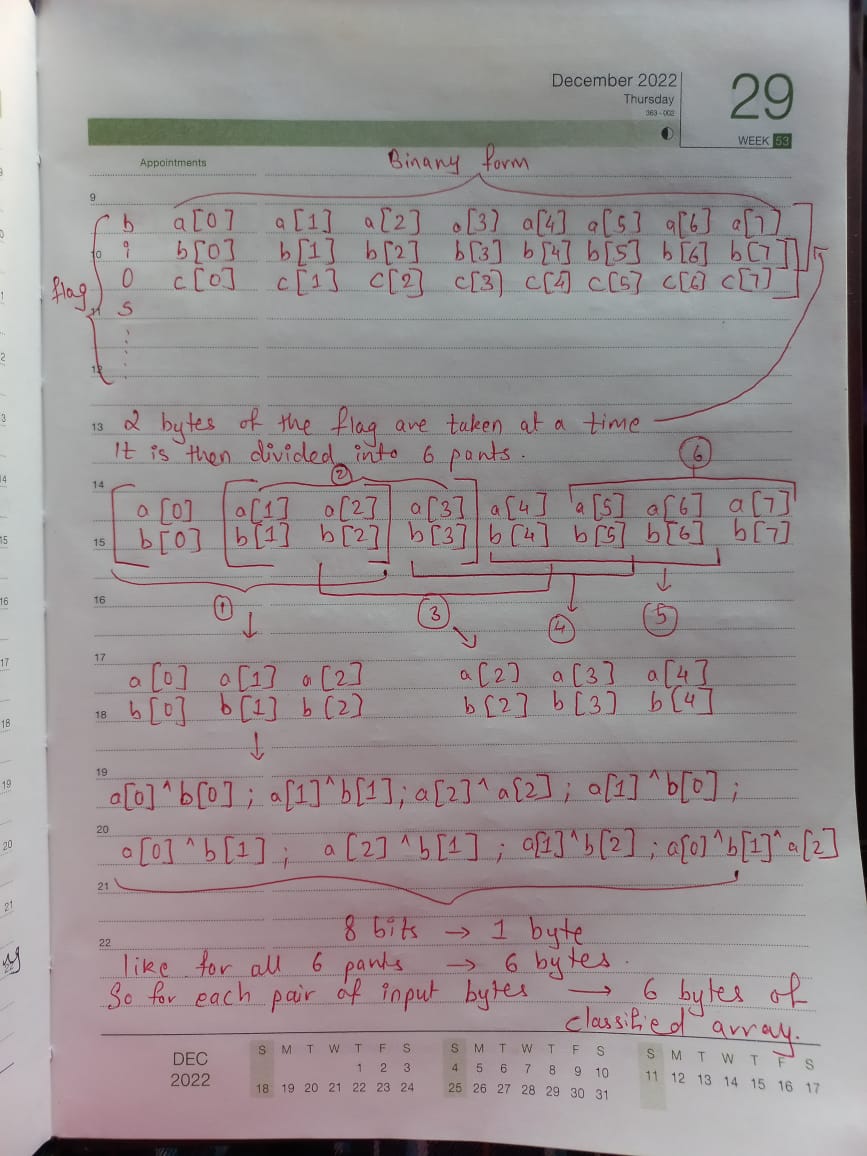 December 2022
Thursday
363-002
29
WEEK 53
Appointments
Binary form
9
b a[0] a[1] a[2] a[3] a[4] a[5] a[6] a[7]
10 i b[0] b[1] b[2] b[3] b[4] b[5] b[6] b[7]
0 c[0] c[1] c[2] c[3] c[4] c[5] c[6] c[7]
flag
11 s
12
13 2 bytes of the flag are taken at a time
It is then divided into 6 parts.
② ⑥
14
a[0] a[1] a[2] a[3] a[4] a[5] a[6] a[7]
15 b[0] b[1] b[2] b[3] b[4] b[5] b[6] b[7]
16
① ③ ④ ⑤
17
a[0] a[1] a[2] a[2] a[3] a[4]
18 b[0] b[1] b[2] b[2] b[3] b[4]
19
a[0]^b[0]; a[1]^b[1]; a[2]^a[2]; a[1]^b[0];
20
a[0]^b[1]; a[2]^b[1]; a[1]^b[2]; a[0]^b[1]^a[2]
21
8 bits → 1 byte
22
like for all 6 parts → 6 bytes.
So for each pair of input bytes → 6 bytes of
classified array.
DEC
2022
S M T W T F S S M T W T F S S M T W T F S
1 2 3 4 5 6 7 8 9 10 11 12 13 14 15 16 17
18 19 20 21 22 23 24 25 26 27 28 29 30 31